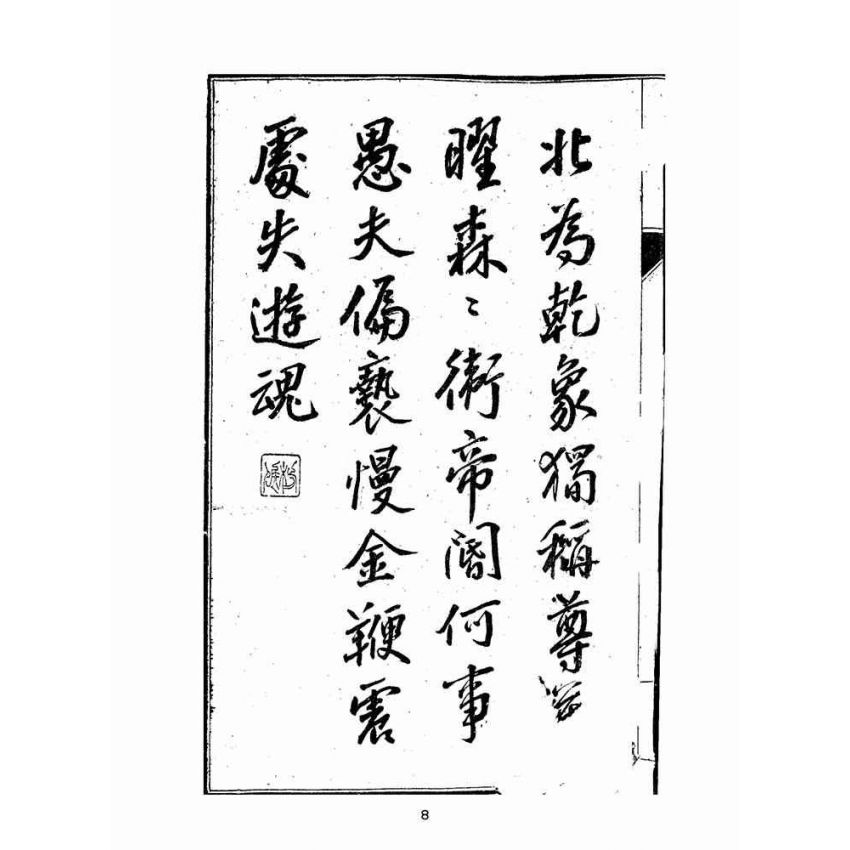 北為乾象獨稱尊
曜森〻衛帝閽何事
愚夫偏褻慢金鞭震
處失遊魂
8